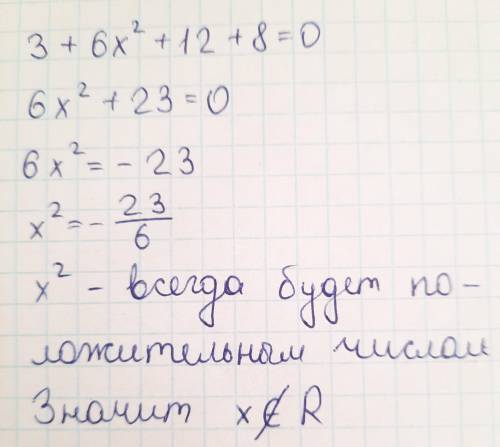 3 + 6x² + 12 + 8 = 0
6x² + 23 = 0
6x² = - 23
x² = - 23/6
x² - всегда будет по-
ложительным числом
Значит x ∉ R